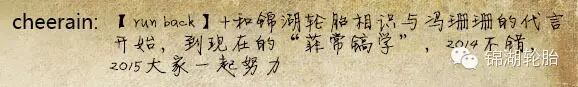 cheerain:【run back】+和锦湖轮胎相识与冯珊珊的代言
开始，到现在的“菲常镐学”，2014不错，
2015大家一起努力
锦湖轮胎